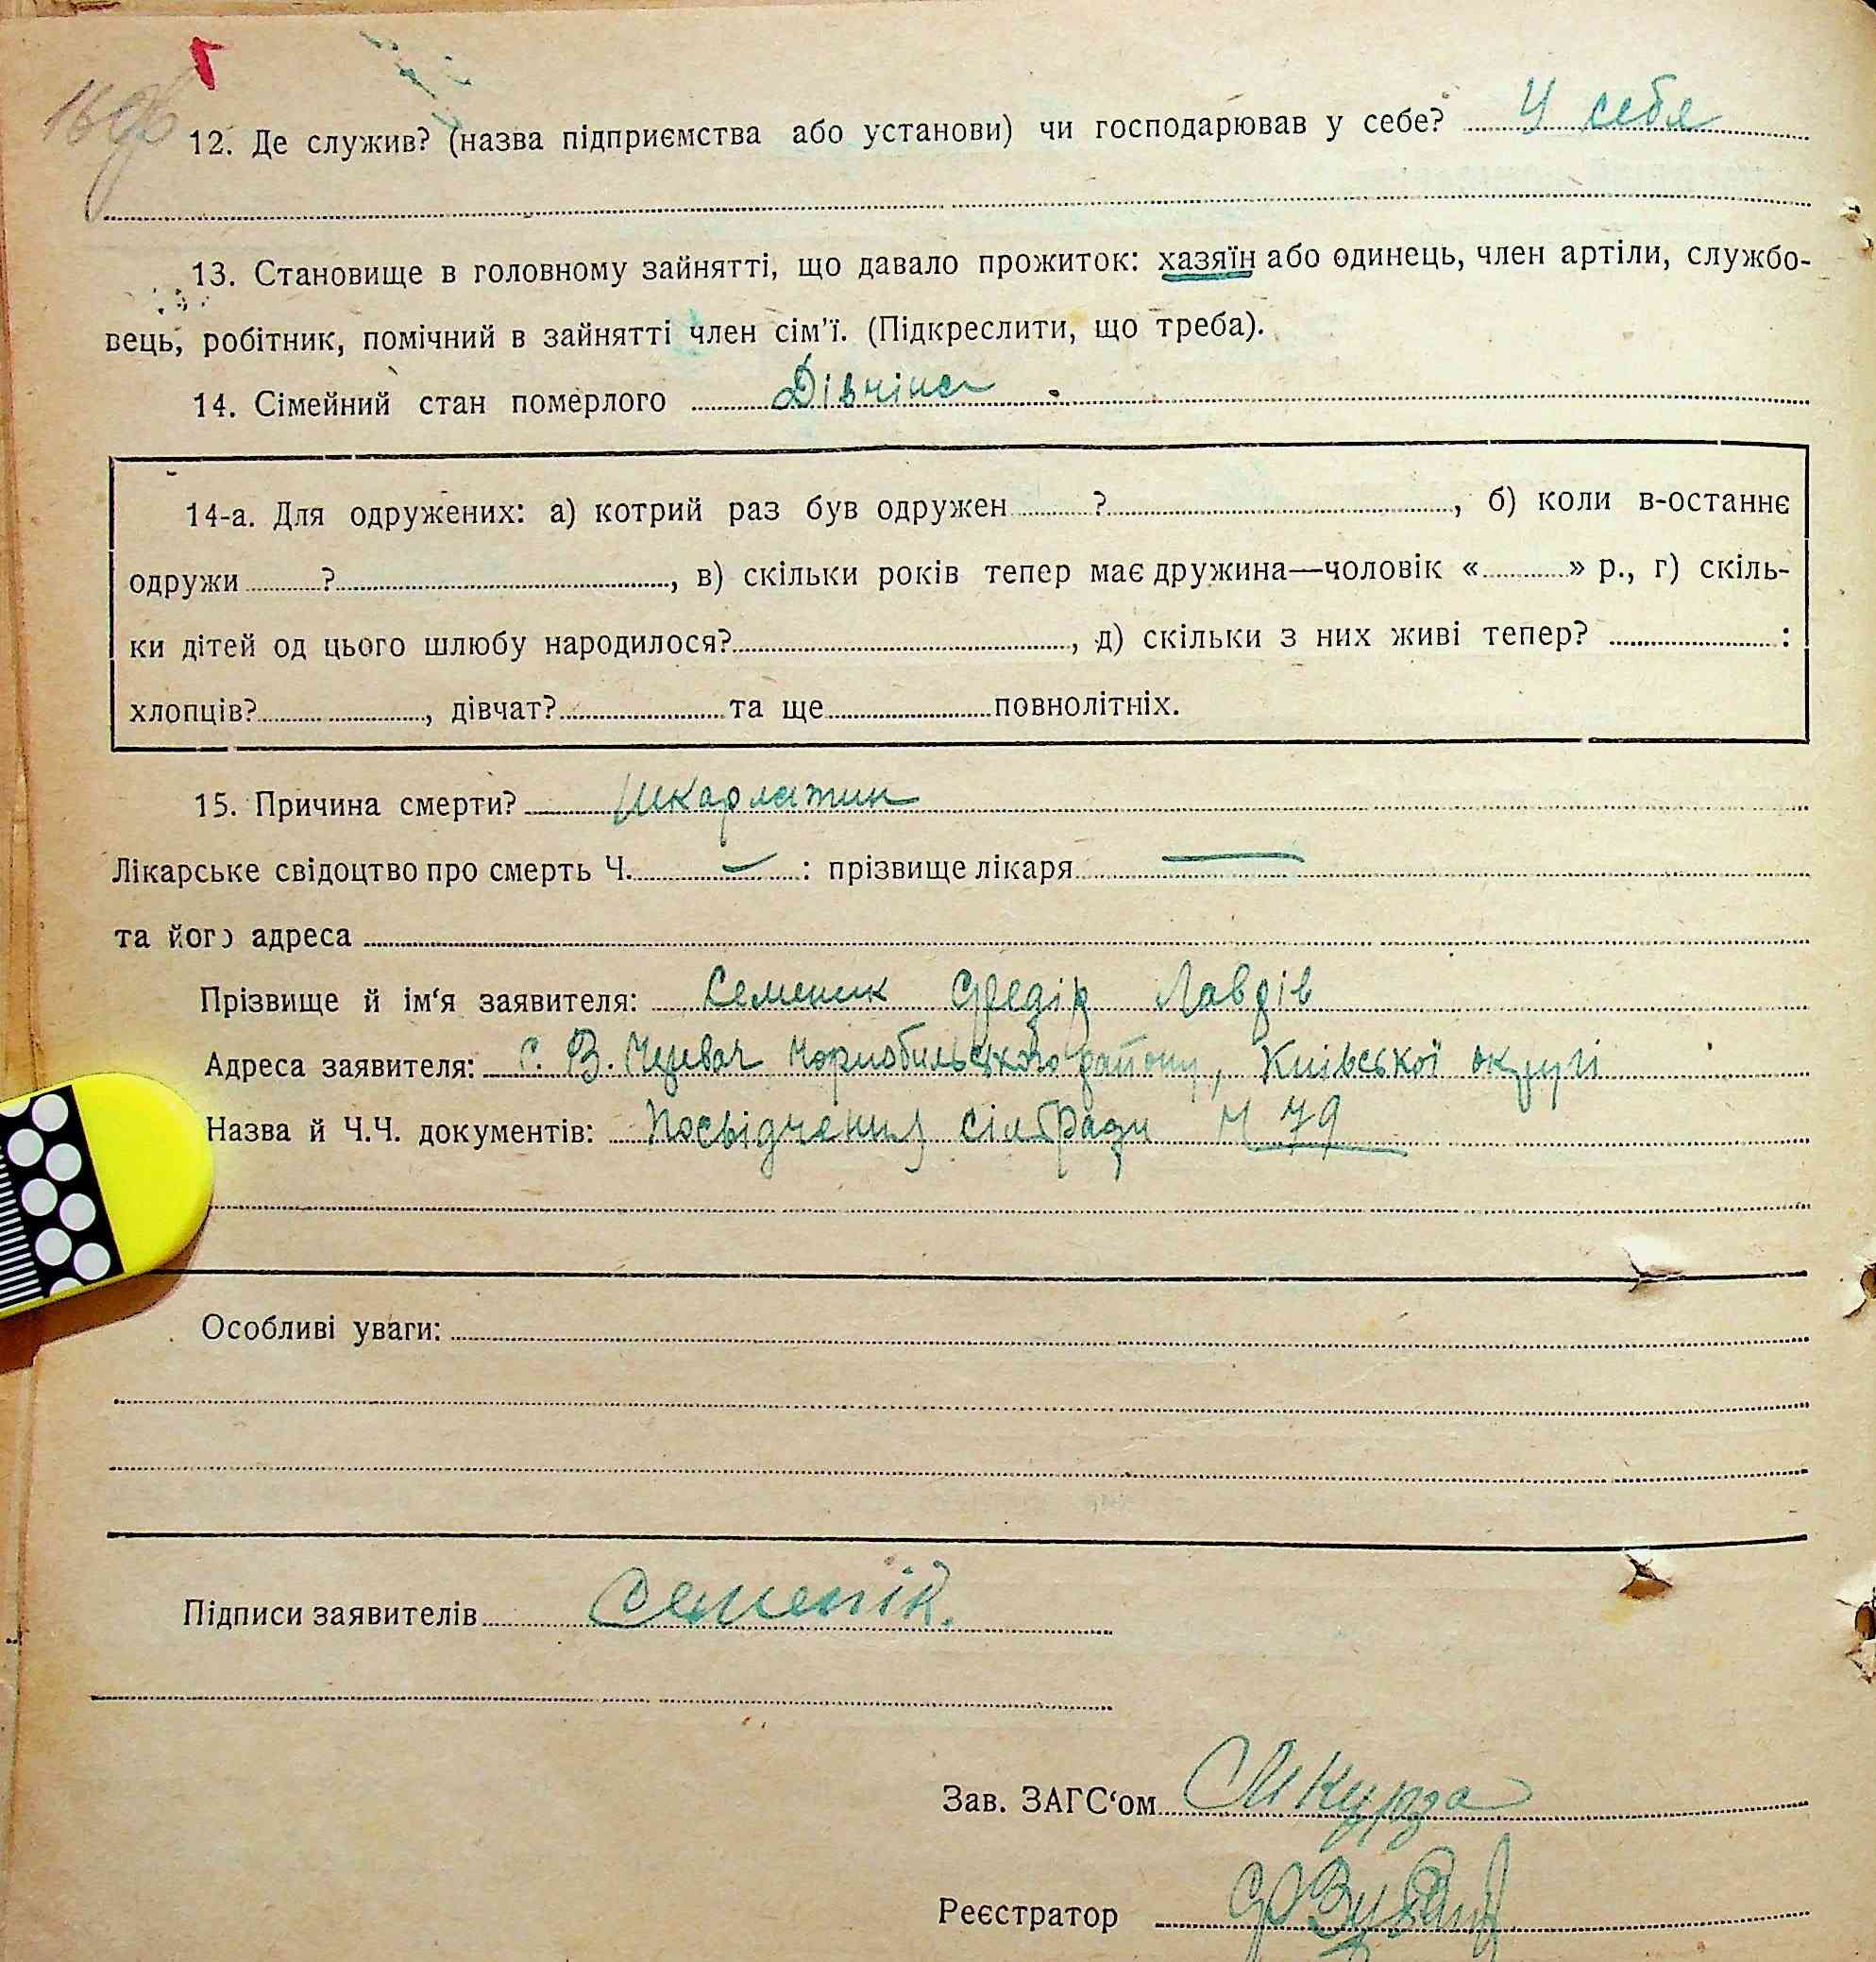 12. Де служив? (назва підприємства або установи) чи господарював у себе? У себя
13. Становище в головному зайнятті, що давало прожиток: хазяїн або одинець, член артіли, службо-
вець, робітник, помічний в зайнятті член сім'ї. (Підкреслити, що треба).
14. Сімейний стан померлого Дівчіна
14-а. Для одружених: а) котрий раз був одружен ?, б) коли в-останнє
одружи ?, в) скільки років тепер має дружина—чоловік « » р., г) скіль-
ки дітей од цього шлюбу народилося?, д) скільки з них живі тепер? :
хлопців?, дівчат? та ще повнолітніх.
15. Причина смерти? Шкарлатин
Лікарське свідоцтво про смерть Ч. — : прізвище лікаря —
та його адреса
Прізвище й ім'я заявителя: Семеник Федір
Адреса заявителя: с. В. Черевач Чорнобильського району, Київської округі
Назва й Ч.Ч. документів: Посвідчення сільради Ч 79
Особливі уваги:
Підписи заявителів Семенік.
Зав. ЗАГС'ом
Реєстратор